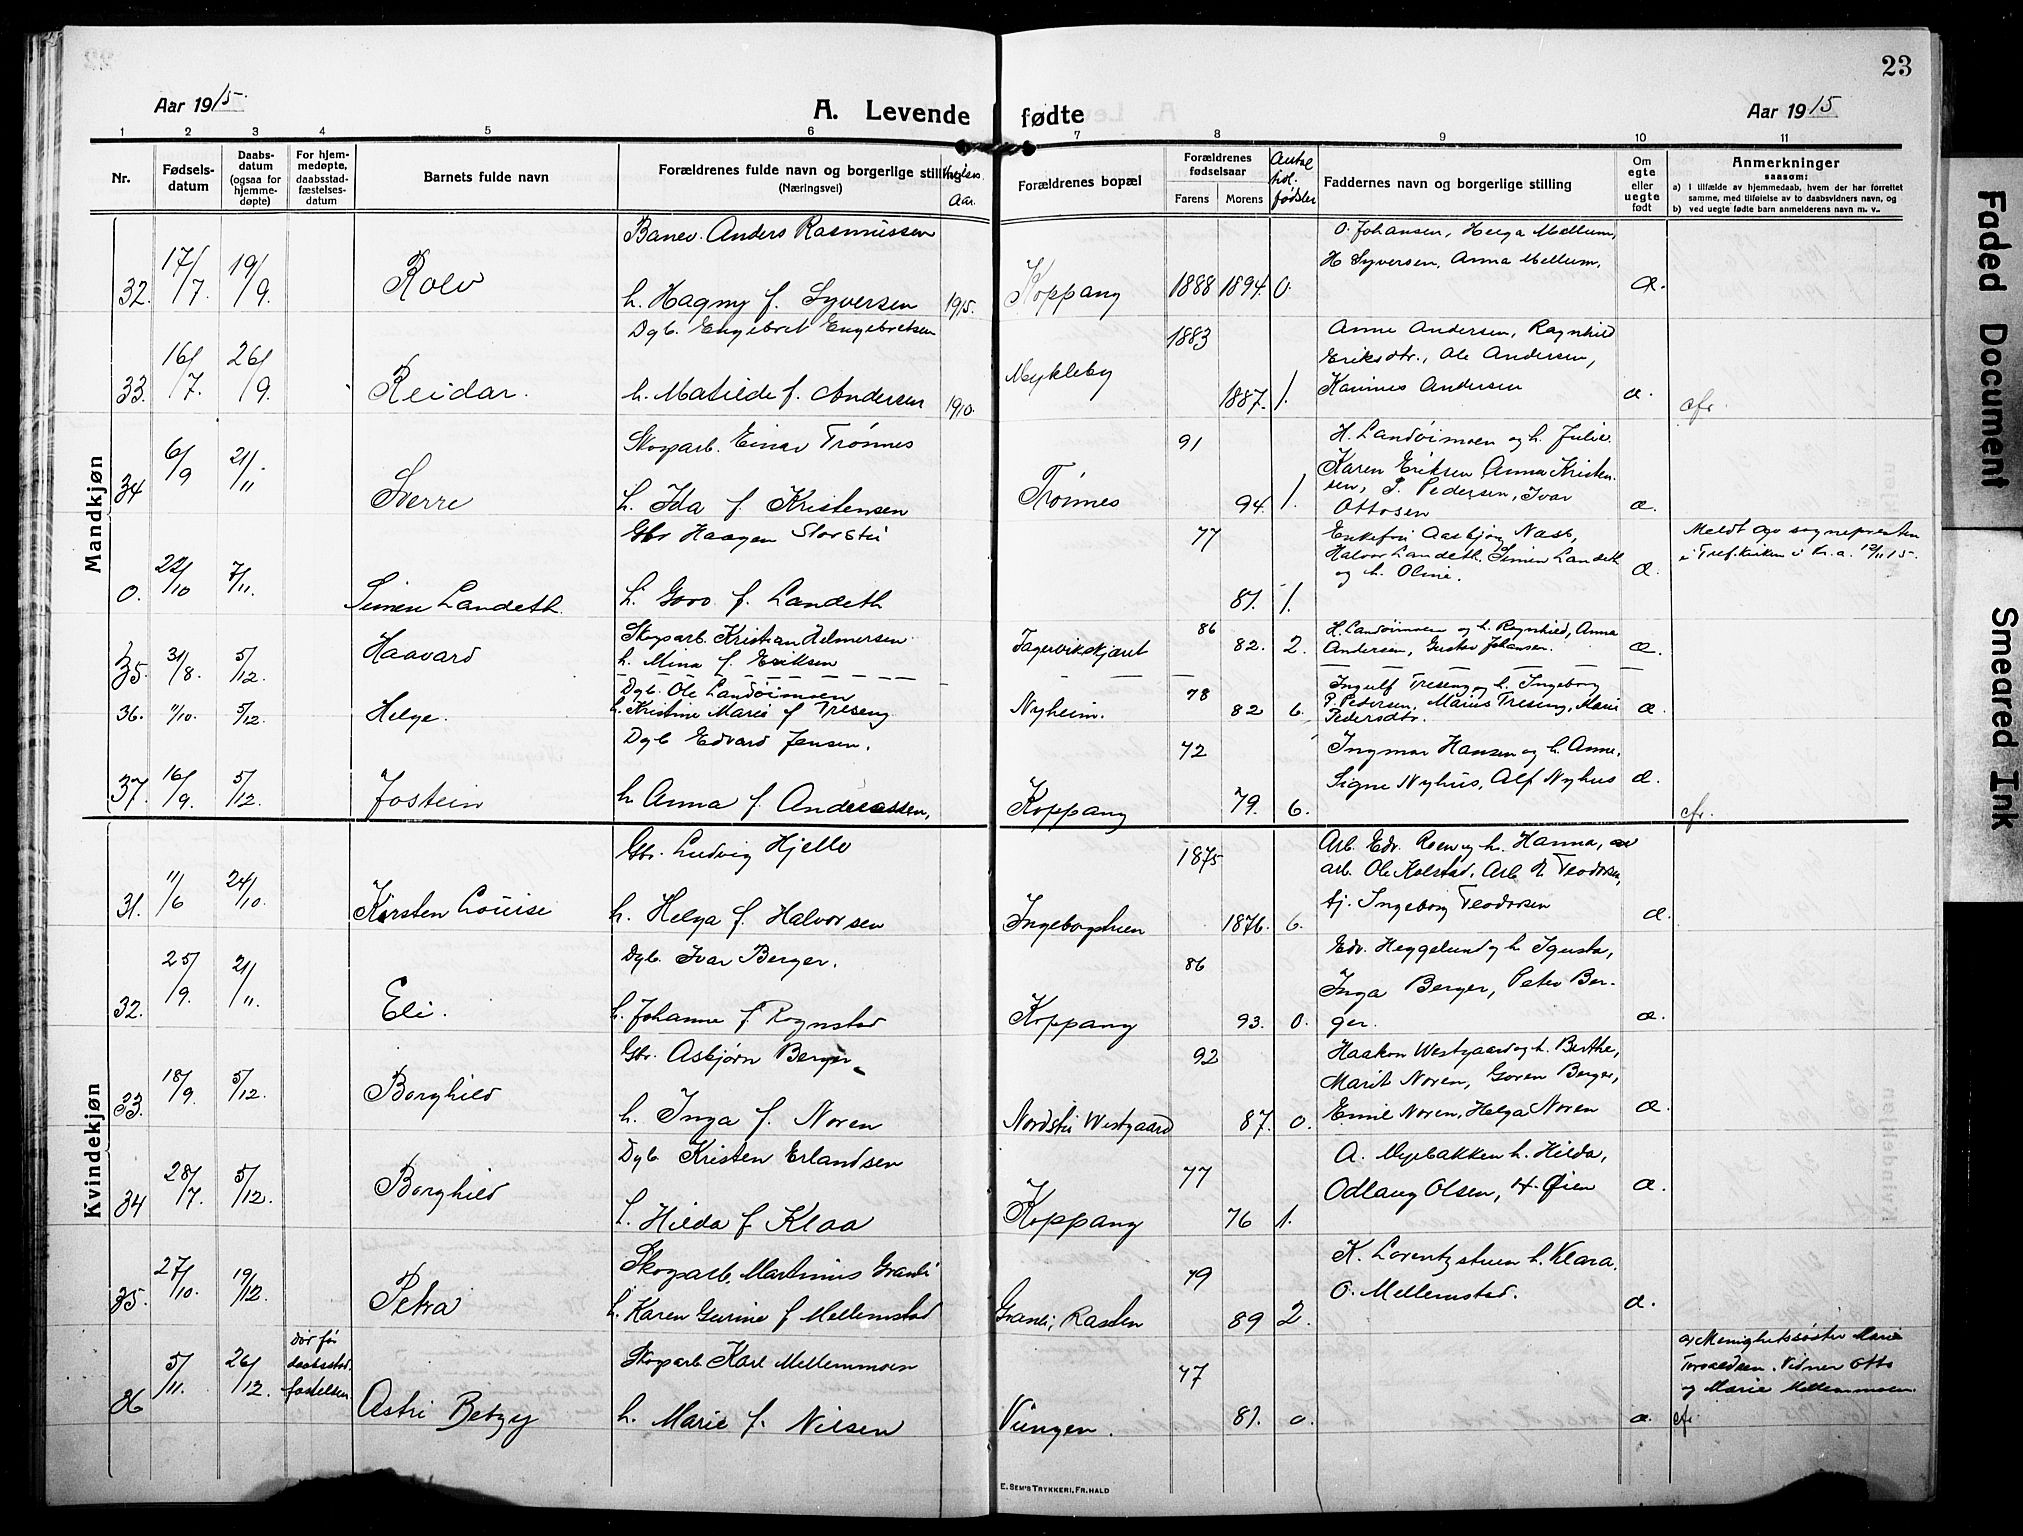 23
Aar 1915.
A. Levende fødte
Aar 1915
1 2 3 4 5 6 7 8 9 10 11
Nr.
Fødsels-
datum
Daabs-
datum
(ogsaa for
hjemme-
døpte)
For hjem-
medøpte,
daabsstad-
fæstelses-
datum
Barnets fulde navn
Forældrenes fulde navn og borgerlige stilling
(Næringsvei)
Aar.
Forældrenes bopæl
Forældrenes
fødselsaar
Farens Morens
Antal
fødsler
Faddernes navn og borgerlige stilling
Om
egte
eller
uegte
født
Anmerkninger
saasom:
a) i tilfælde av hjemmedaab, hvem der har forrettet
samme, med tilføielse av to daabsvidners navn, og
b) ved uegte fødte barn anmelderens navn m. v.
Mandkjøn
32. 17/7. 19/9. Rolv
Banev. Anders Rasmussen
h. Hagny f. Syversen 1915.
Koppang 1888 1894 0.
O. Johansen, Helga Mellum,
H Syversen, Anna Mellum.
Æ.
33. 16/7. 26/9. Reidar.
Dgb. Engebret Engebretsen
h. Matilde f. Andersen 1910.
Mykleby 1883 1887. 1.
Anne Andersen, Ragnhild
Eriksdtr., Ole Andersen,
Andersen
æ.
cfr.
34 6/9 21/11. Sverre
Skogarb. Einar Trønnes
h. Ida f. Kristensen
Trønnes 91 94. 1.
H. Landøimoen og h. Julie
Karen Eriksen Anna Kristen-
sen, P. Pedersen, Ivar
Ottosen
æ.
0. 22/10 7/11. Simen Landeth.
Gbr Haagen Storstu
h. Goro f. Landeth
77 87. 1.
Enkefru Aasbjør Næss,
Halvor Landeth. Simen Landeth
og h. Oline.
Æ.
Meldt sognepresten
i Trefkirken i Kr.a. 12/11 15.
35. 31/8. 5/12. Haavard
Skogarb. Kristian Helmersen
h. Mina f. Eriksen
Fagervikskjæret 86 82. 2.
H. Landøimoen og h. Ragnhild, Anna
Andersen, Gustav Johansen.
Æ.
36. 1/10. 5/12. Helge.
Dgb. Ole Landøimoen
h. Kristine Marie f Treseng
Nyheim. 78 82 6.
Ingulf Treseng og h. Ingeborg
P. Pedersen, Marius Treseng, Marie
Pedersdtr.
æ.
37. 16/9. 5/12. Jostein
Dgb Edvard Jensen.
h. Anna f. Andreassen,
Koppang 72 79. 6.
Ingmar Hansen og h. Anne,
Signe Nyhus, Alf Nyhus
æ.
cfr.
Kvindekjøn
31. 11/6 24/10. Kirsten Louise
Gbr. Ludvig Hjelle
h. Helga f. Halvorsen
Ingeborgstuen 1875 1876. 6.
Arb. Edv. Roen og h. Hanna,
arb. Ole Kolstad, Arb Teodorsen,
tj. Ingeborg Teodorsen
æ.
32. 25/9. 21/11. Eli.
Dgb. Ivar Berger.
h. Johanne f Rognstad
Koppang 86 93. 0.
Edv. Heggelund og h. Igusta,
Inga Berger, Peter Ber-
ger.
æ.
33. 18/9. 5/12. Borghild
Gbr. Asbjørn Berger
h. Inga f. Noren
Nordstu Westgaard 92 87. 0.
Haakon Westgaard og h. Berthe,
Marit Noren, Goren Berger,
Emil Noren, Helga Noren
Æ.
34 28/7. 5/12. Borghild
Dgb Kristen Erlandsen
h. Hilda f Klaa
Koppang 77 76 1.
A. Myrbakken h. Hilda,
Odlaug Olsen, H. Øien
Æ.
35. 27/10. 19/12. Petra
Skogarb. Martinus Granli
h. Karen Gurine f Mellemstad
Granli, Rasten 79 89 2.
K. Lorentzstuen h. Klara.
O. Mellemstad.
æ.
36 5/11. 26/12. dør før
daabsstad-
fæstelsen
Astri Betzy
Skogarb Karl Mellemmoen
h. Marie f. Nilsen
Vingen. 77 81. 0.
æ.
a) Menighetssøster Marie
Torvaldsen. Vidner Otto
og Marie Mellemmoen.
cfr
E. SEM'S TRYKKERI, FR.HALD
Faded Document
Smeared Ink